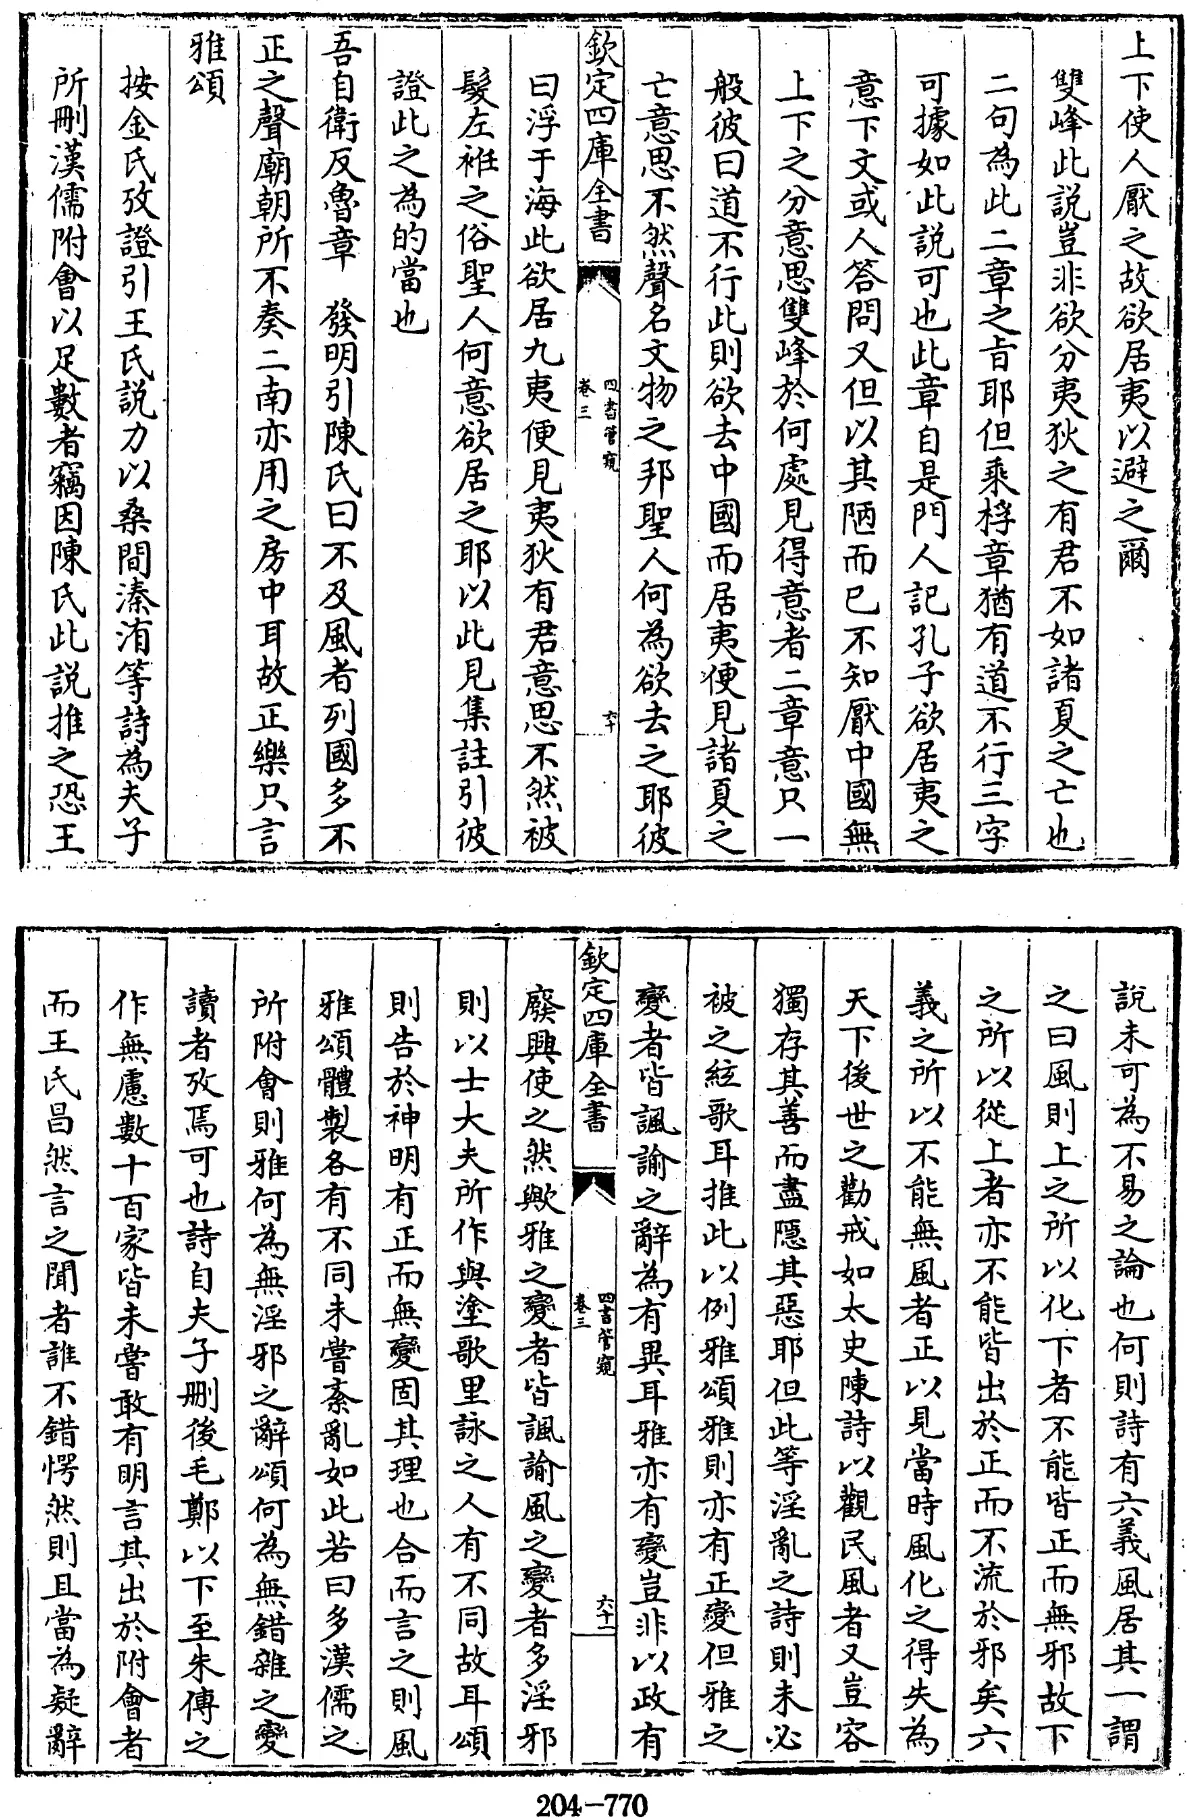 上下使人厭之故欲居夷以避之爾
雙峰此說豈非欲分夷狄之有君不如諸夏之亡也
二句為此二章之旨耶但乘桴章猶有道不行三字
可據如此說可也此章自是門人記孔子欲居夷之
意下文或人答問又但以其陋而已不知厭中國無
上下之分意思雙峰於何處見得意者二章意只一
般彼曰道不行此則欲去中國而居夷便見諸夏之
亡意思不然聲名文物之邦聖人何為欲去之耶彼
欽定四庫全書
四書管窺
卷三
六十
曰浮于海此欲居九夷便見夷狄有君意思不然被
髮左袵之俗聖人何意欲居之耶以此見集註引彼
證此之為的當也
吾自衛反魯章　發明引陳氏曰不及風者列國多不
正之聲廟朝所不奏二南亦用之房中耳故正樂只言
雅頌
按金氏攷證引王氏說力以桑間溱洧等詩為夫子
所刪漢儒附會以足數者竊因陳氏此說推之恐王
說未可為不易之論也何則詩有六義風居其一謂
之曰風則上之所以化下者不能皆正而無邪故下
之所以從上者亦不能皆出於正而不流於邪矣六
義之所以不能無風者正以見當時風化之得失為
天下後世之勸戒如太史陳詩以觀民風者又豈容
獨存其善而盡隱其惡耶但此等淫亂之詩則未必
被之絃歌耳推此以例雅頌雅則亦有正變但雅之
變者皆諷諭之辭為有異耳雅亦有變豈非以政有
欽定四庫全書
四書管窺
卷三
六十一
廢興使之然歟雅之變者皆諷諭風之變者多淫邪
則以士大夫所作與塗歌里詠之人有不同故耳頌
則告於神明有正而無變固其理也合而言之則風
雅頌體製各有不同未嘗紊亂如此若曰多漢儒之
所附會則雅何為無淫邪之辭頌何為無錯雜之變
讀者攷焉可也詩自夫子刪後毛鄭以下至朱傳之
作無慮數十百家皆未嘗敢有明言其出於附會者
而王氏昌然言之聞者誰不錯愕然則且當為疑辭
204-770